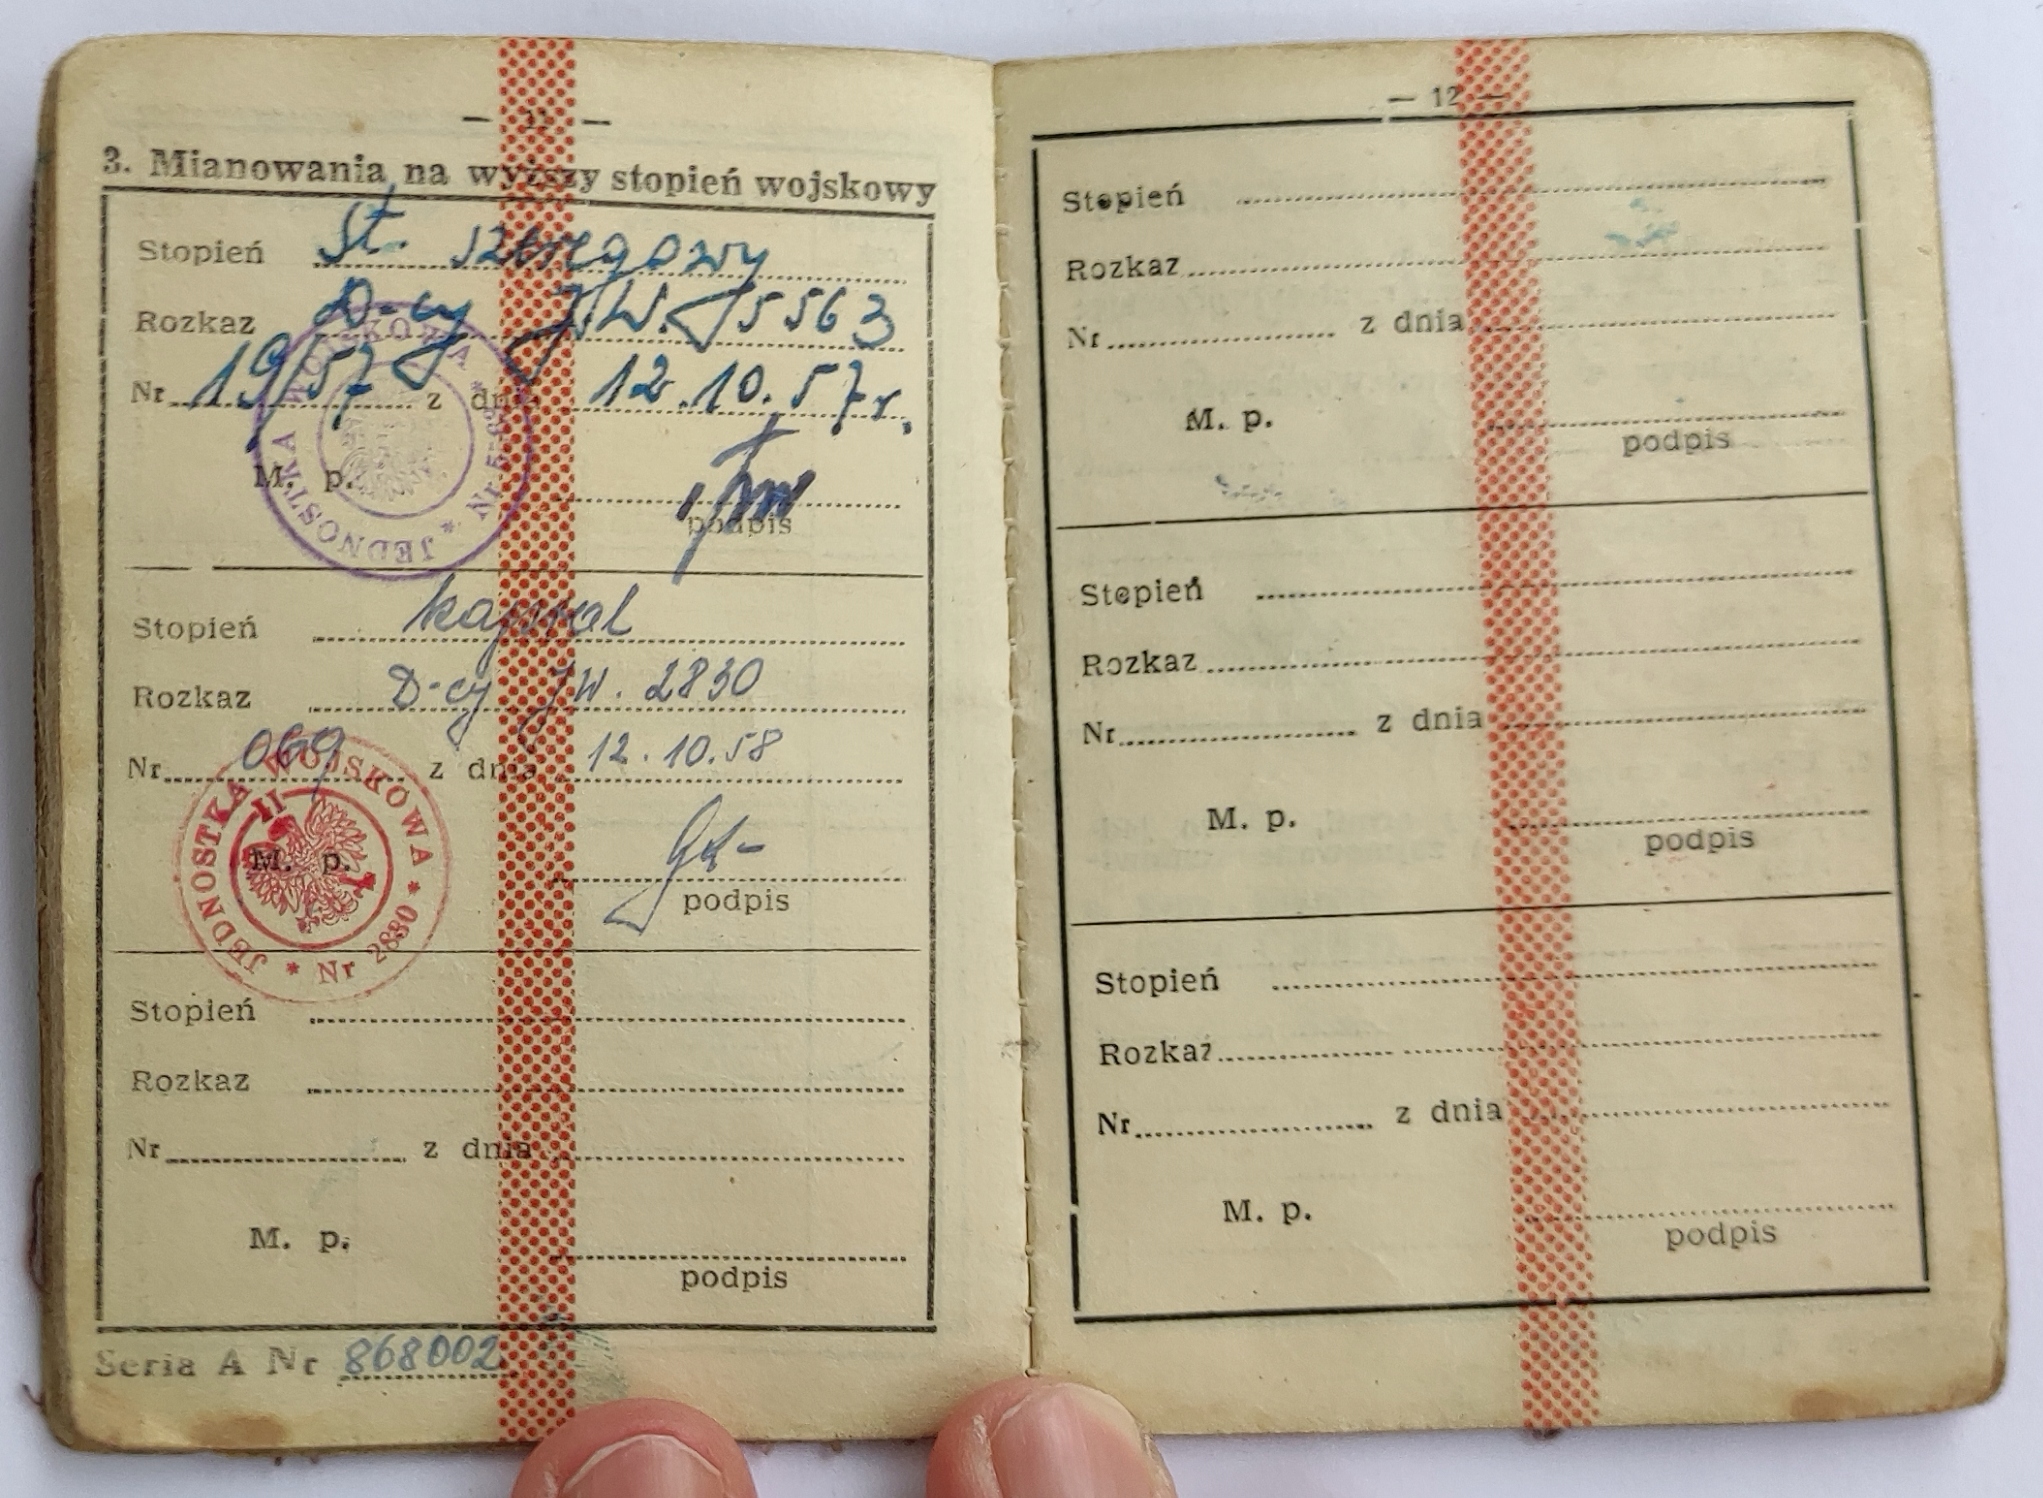 — 11 —
3. Mianowania na wyższy stopień wojskowy
Stopień St. szeregowy
Rozkaz D-cy J.W. 5563
Nr 19/57 z dnia 12.10.57r.
M. p.
podpis
JEDNOSTKA WOJSKOWA * Nr 5563 *
Stopień kapral
Rozkaz D-cy JW. 2830
Nr 069 z dnia 12.10.58
M. p.
podpis
JEDNOSTKA WOJSKOWA * Nr 2830 *
II
Stopień
Rozkaz
Nr z dnia
M. p.
podpis
Seria A Nr 868002
— 12 —
Stopień
Rozkaz
Nr z dnia
M. p.
podpis
Stopień
Rozkaz
Nr z dnia
M. p.
podpis
Stopień
Rozkaz
Nr z dnia
M. p.
podpis